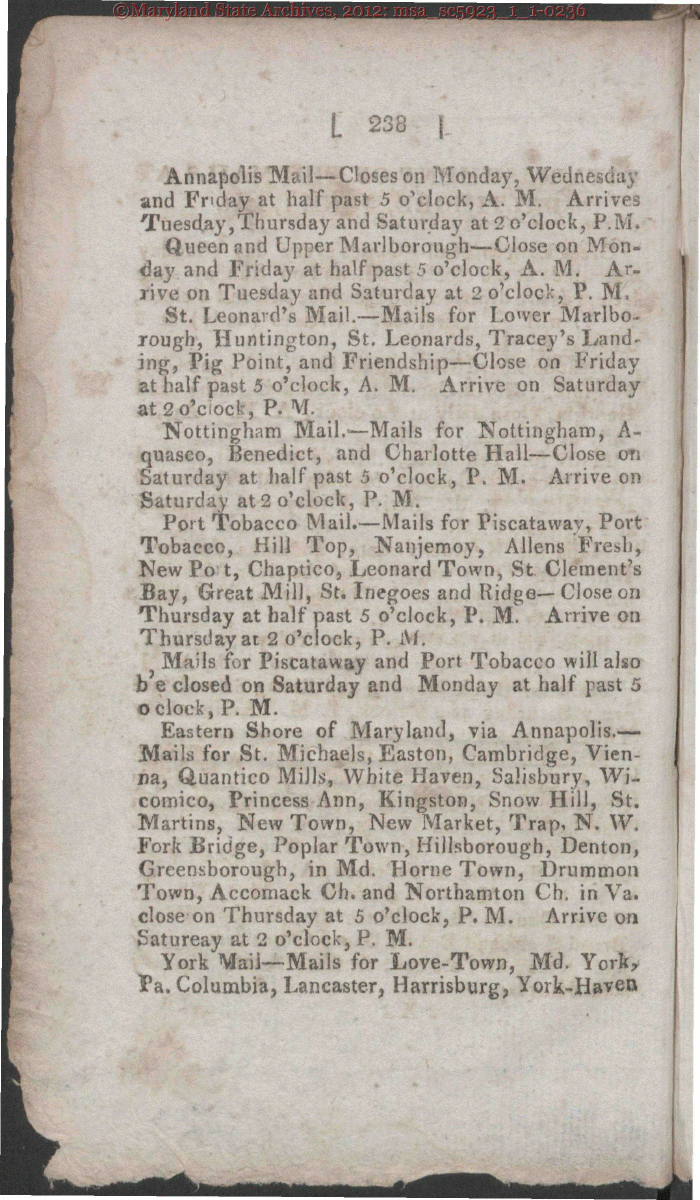 ©Maryland State Archives, 2012: msa_sc5923_1_1-0236
[ 238 ]
Annapolis Mail—Closes on Monday, Wednesday
and Friday at half past 5 o'clock, A. M. Arrives
Tuesday, Thursday and Saturday at 2 o'clock, P.M.
Queen and Upper Marlborough—Close on Mon-
day and Friday at half past 5 o'clock, A. M. Ar-
rive on Tuesday and Saturday at 2 o'clock, P. M.
St. Leonard's Mail.—Mails for Lower Marlbo-
rough, Huntington, St. Leonards, Tracey's Land-
ing, Pig Point, and Friendship—Close on Friday
at half past 5 o'clock, A. M. Arrive on Saturday
at 2 o'clock, P. M.
Nottingham Mail.—Mails for Nottingham, A-
quasco, Benedict, and Charlotte Hall—Close on
Saturday at half past 5 o'clock, P. M. Arrive on
Saturday at 2 o'clock, P. M.
Port Tobacco Mail.—Mails for Piscataway, Port
Tobacco, Hill Top, Nanjemoy, Allens Fresh,
New Port, Chaptico, Leonard Town, St. Clement's
Bay, Great Mill, St. Inegoes and Ridge—Close on
Thursday at half past 5 o'clock, P. M. Arrive on
Thursday at 2 o'clock, P. M.
Mails for Piscataway and Port Tobacco will also
b'e closed on Saturday and Monday at half past 5
o clock, P. M.
Eastern Shore of Maryland, via Annapolis.—
Mails for St. Michaels, Easton, Cambridge, Vien-
na, Quantico Mills, White Haven, Salisbury, Wi-
comico, Princess Ann, Kingston, Snow Hill, St.
Martins, New Town, New Market, Trap, N. W.
Fork Bridge, Poplar Town, Hillsborough, Denton,
Greensborough, in Md. Horne Town, Drummon
Town, Accomack Ch. and Northamton Ch. in Va.
close on Thursday at 5 o'clock, P. M. Arrive on
Satureay at 2 o'clock, P. M.
York Mail—Mails for Love-Town, Md. York,
Pa. Columbia, Lancaster, Harrisburg, York-Haven